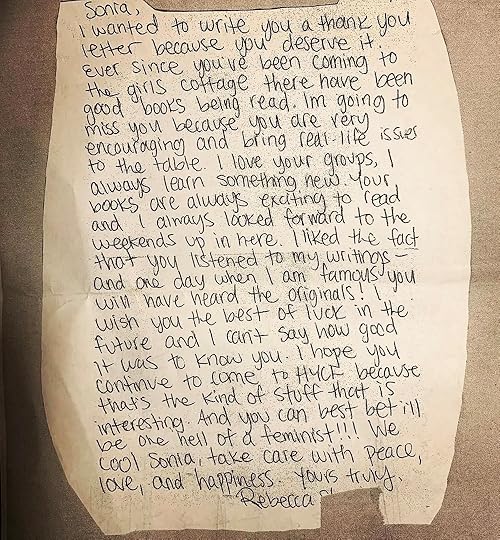 Sonia,
I wanted to write you a thank you
letter because you deserve it.
Ever since you've been coming to
the girls cottage there have been
good books being read. Im going to
miss you because you are very
encouraging and bring real life issues
to the table. I love your groups, I
always learn something new. Your
books are always exciting to read
and I always looked forward to the
weekends up in here. I liked the fact
that you listened to my writings -
and one day when I am famous you
will have heard the originals! I
wish you the best of luck in the
future and I can't say how good
it was to know you. I hope you
continue to come to HYCF because
that's the kind of stuff that is
interesting. And you can best bet i'll
be one hell of a feminist!!! We
cool Sonia, take care with peace,
love, and happiness. Yours truly,
Rebecca